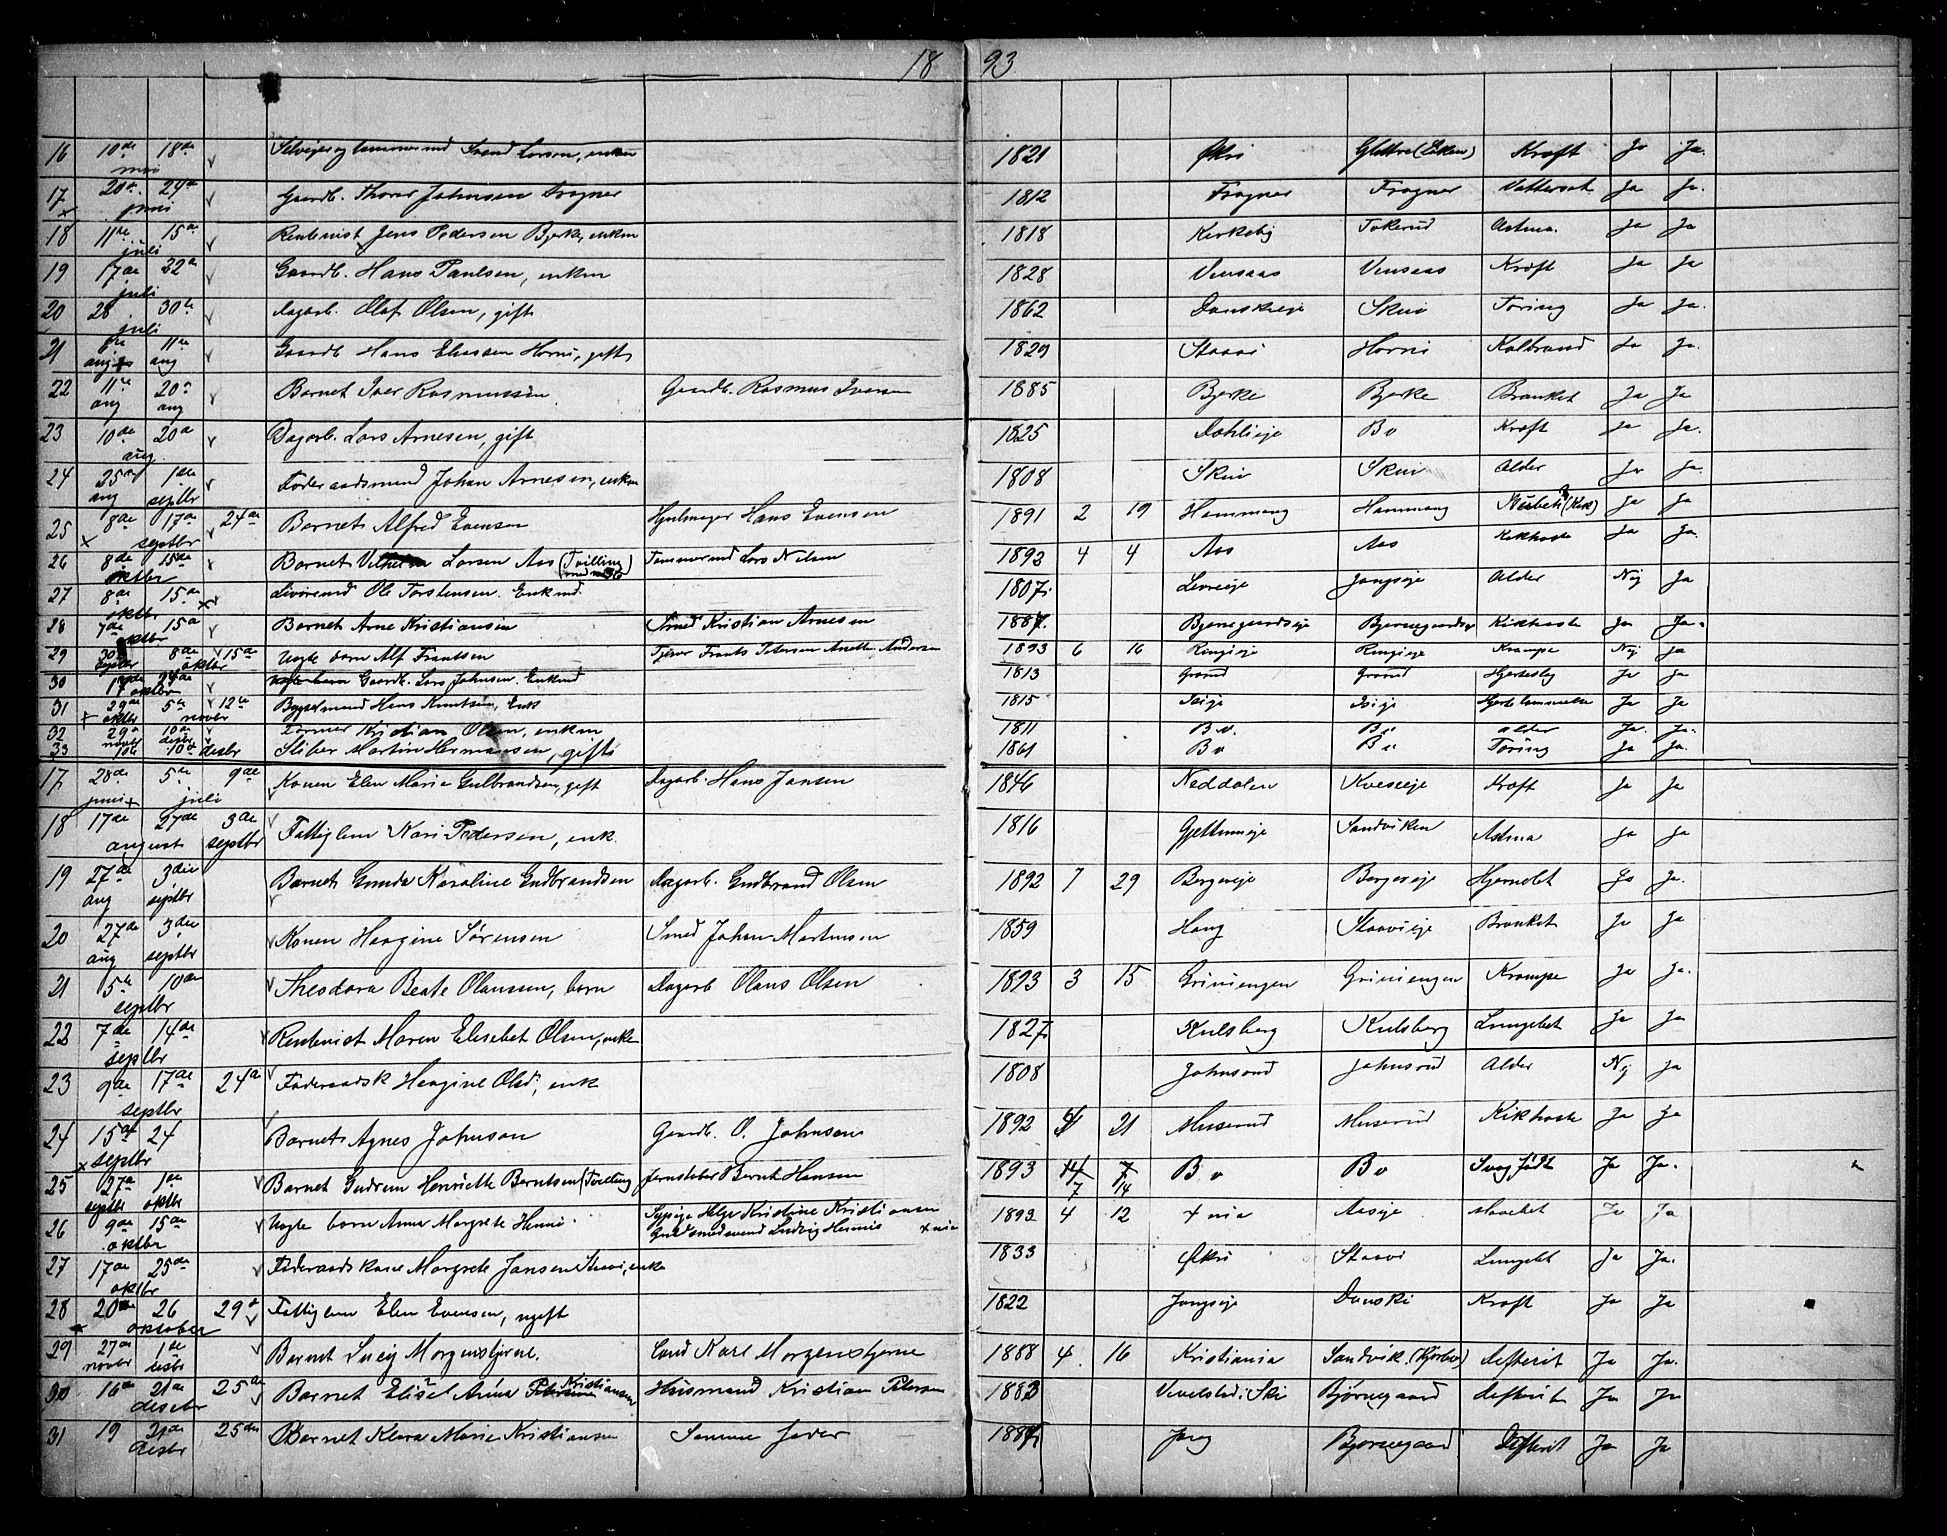 18 93
16 10de mai 18de Selveier og tømmermd Svend Larsen, enkem 1821 Økri Glittre (Løken) Kræft Ja Ja.
17 20de juni 24de Gaardb. Thorer Johnsen Frogner 1812 Frogner Frogner Vattersot Ja Ja.
18 11te juli 15de Rentenist Jens Pedersen Bjerke, enkem 1818 Kirkeby Tokerud Astma. Ja Ja
19 17de juli 22de Gaardb. Hans Paulsen, enkem 1828 Vensaas Vensaas Kræft Ja Ja
20 28 juli 30te Dagarb. Olaf Olsen, gift 1862 Danskeeje Skui Tæring Ja Ja.
21 6te aug 11te aug Gaardb. Hans Eliassen Horni, gift 1829 Staavi Horni Kolbrand Ja Ja.
22 11te aug 20de aug Barnet Iver Rasmussen. Gaardb. Rasmus Iversen 1885 Bjerke Bjerke Bronket Ja Ja
23 10de aug. 20de Dagarb. Lars Arnesen, gift 1825 Dahlieje Bo Kræft Ja Ja.
24 25de aug 1ste septbr Føderaadsmand Johan Arnesen, enkem 1808 Skui Skui Alder Ja Ja
25 8de 17de septbr 24de Barnet Alfred Evensen Hjulmager Hans Evensen 1891 2 19 Hammang Hammang (Kik) Ja Ja
26 8de oktbr 15de Barnet Larsen Aas (Tvilling) Tømmermd Lars Nilsen 1892 4 4 Aas Aas Kikhoste Ja Ja.
27 8de oktbr 15de Ole Torstensen. Enkemd. 1807 Levreeje Jongseje Alder Nej Ja
28 7de oktbr 15de Barnet Arne Kristiansen Smed Kristian Arnesen 1887 Bjernegaardseje Bjernegaardseje Kikhoste Ja Ja.
29 30te septbr 8de oktbr 15de Uægte barn Alf Frantsen Tjener Frants Petersen Anette Andersen 1893 6 16 Ringieje Ringieje Krampe Nej Ja
30 17de oktbr 24de Gaardb. Lars Johnsen. Enkemd 1813 Grorud Grorud Hjertesyg Ja Ja
31 29de oktbr 5te novbr 12te Bygselmand Hans Knutsen, Enk 1815 Isieje Isieje Hjertelammelse Ja Ja
32 29de novbr 10de desbr Former Kristian Olsen, enkem 1811 Bo. Bo Alder Ja. Ja.
33 10de 10de desbr Sliber Martin Hermansen, gift 1861 Bo Bo Tæring Ja Ja
17 28de juni 5te juli 9de Konen Elen Marie Gulbrandsen, gift Dagarb. Hans Jansen 1846 Neddalen Kveseeje Kræft Ja Ja
18 17de august 27de 3de septbr Fattiglem Kari Pedersen, enk. 1816 Gjettumeje Sandviken Astma Ja Ja
19 27de aug 3die septbr Barnet Gunda Karoline Gudbrandsen Dagarb. Gudbrand Olsen 1892 7 29 Bergereje Bergereje Hjernebet Ja Ja.
20 27de aug 3die septbr Konen Haagine Sørensen Smed Johan Martinsen 1859 Haug Staavieje Bronket Ja Ja
21 5te septbr 10de Theodora Beate Olaussen, barn Dagarb Olaus Olsen 1893 3 15 Griniengen Griniengen Krampe Ja Ja.
22 7de septbr 14de Rentenist Maren Elisebet Olsen, enke 1827 Kulsberg Kulsberg Lungebet Ja Ja
23 9de septbr 17de 24de Føderaadsk Haagine Olsd, enk 1808 Johnsrud Johnsrud Alder Nej Ja
24 15de septbr 24 Barnet Agnes Johnson Gaardb. O. Johnsen 1892 4 21 Muserud Muserud Kikhoste Ja Ja
25 27de septbr 1ste oktbr Barnet Gudrun Henriette Berntsen (Tvilling Jernsliber Bernt Hansen 1893 4/7 7/14 Bo Bo Svag født Ja Ja.
26 9de oktbr 15de Uægte barn Anna Margrete Hennie. Sypige Helga Kristine Kristiansen Guldsmedsvend Ludvig Hennie Xnia 1893 4 12 Xnia Aaseje Mavebet Ja Ja
27 17de oktbr 25de Føderaadskone Margrete Jansen Staavi, enke 1833 Økri Staavi Lungebt Ja Ja.
28 20de 26 oktober 29de Fattiglem Elen Evensen, ugift 1822 Jongseje Danski Kræft Ja Ja
29 27de novbr 1ste desbr Barnet Lucy Morgenstjerne. Cand Karl Morgenstjerne 1888 4 16 Kristiania Sandvik. (Kjørbo) defterit Ja Ja.
30 16de 21de desebr 25de Barnet Elise Anna Petersen Kristiansen Husmand Kristian Petersen 1883 Vevelstad i Ski Bjørnegaard defterit Ja Ja
31 19 21de desbr 25de Barnet Klara Marie Kristiansen Samme fader 1887 Jong Bjørnegaard Defterit Ja Ja